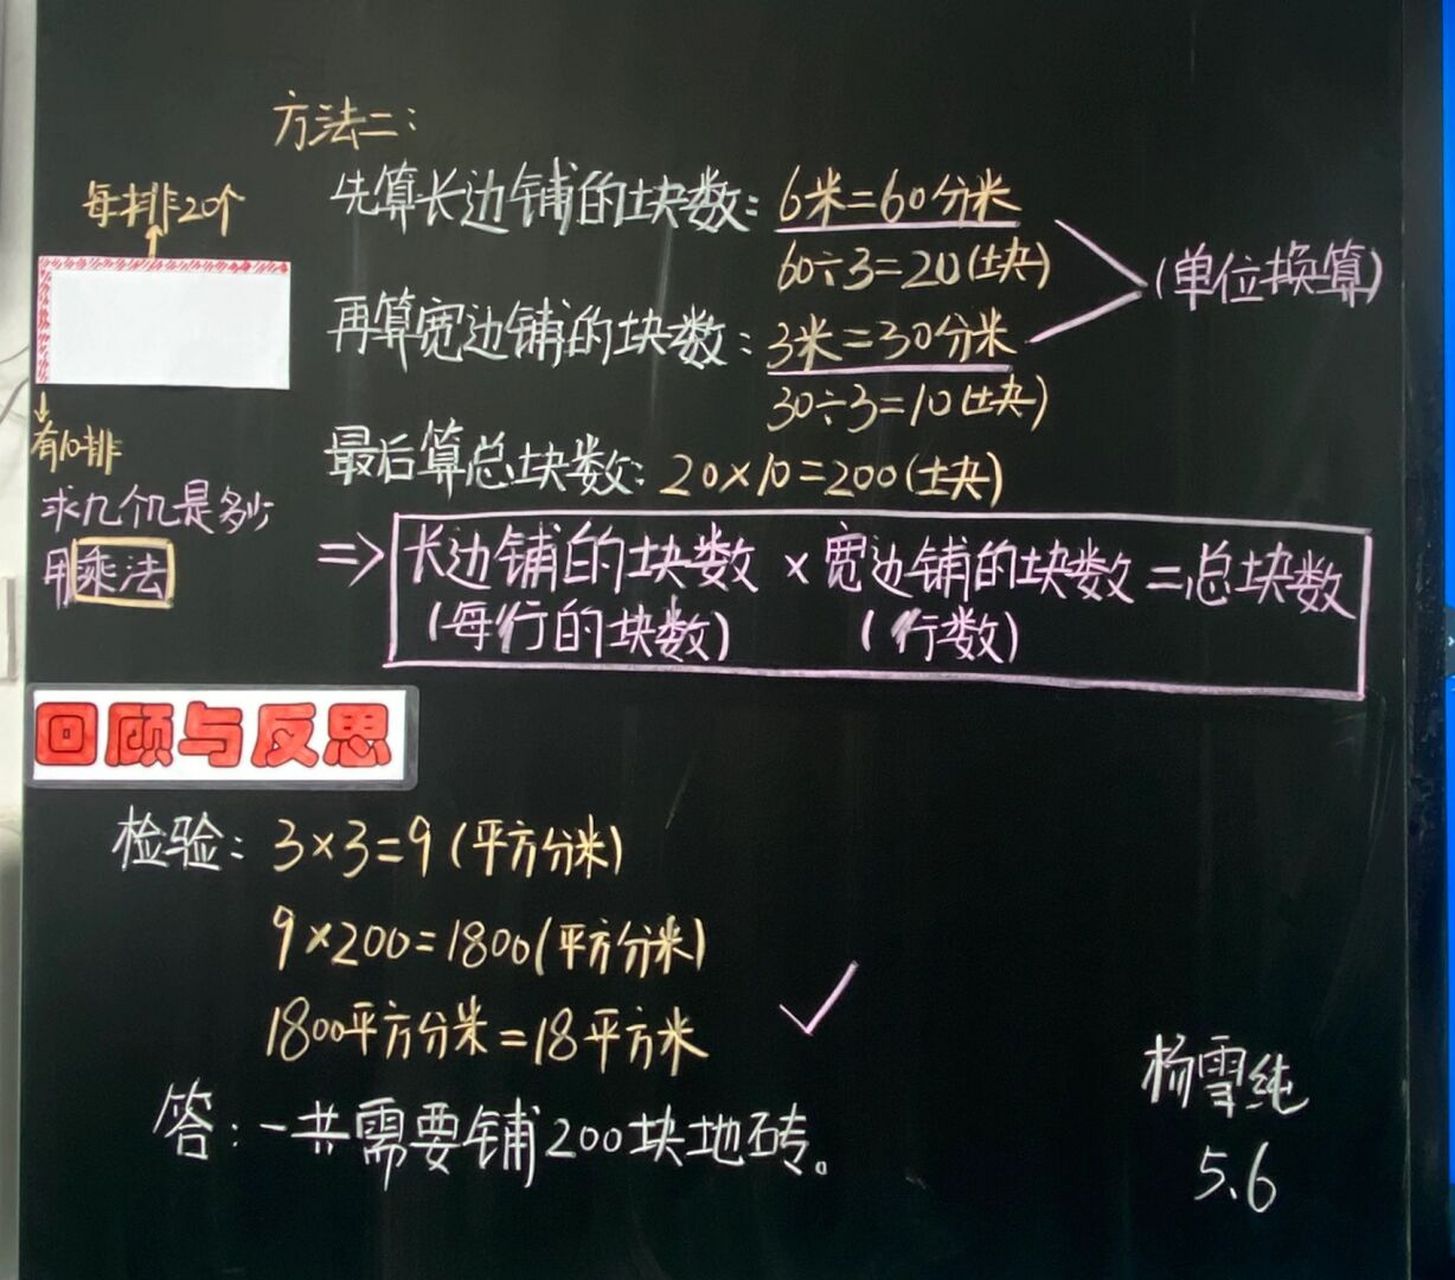 方法二：
每排20个
先算长边铺的块数：6米=60分米
60÷3=20(块)
(单位换算)
再算宽边铺的块数：3米=30分米
30÷3=10(块)
有10排
最后算总块数：20×10=200(块)
求几个几是多少
用乘法
=>长边铺的块数×宽边铺的块数=总块数
(每行的块数) (行数)
回顾与反思
检验：3×3=9(平方分米)
9×200=1800(平方分米)
1800平方分米=18平方米
答：一共需要铺200块地砖。
杨雪纯
5.6